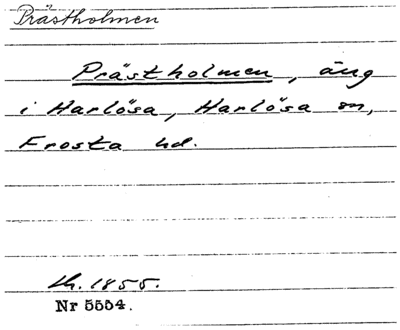 Prästholmen
Prästholmen, äng
i Harlösa, Harlösa sn,
Frosta hd.
Lh. 1855.
Nr 5554.